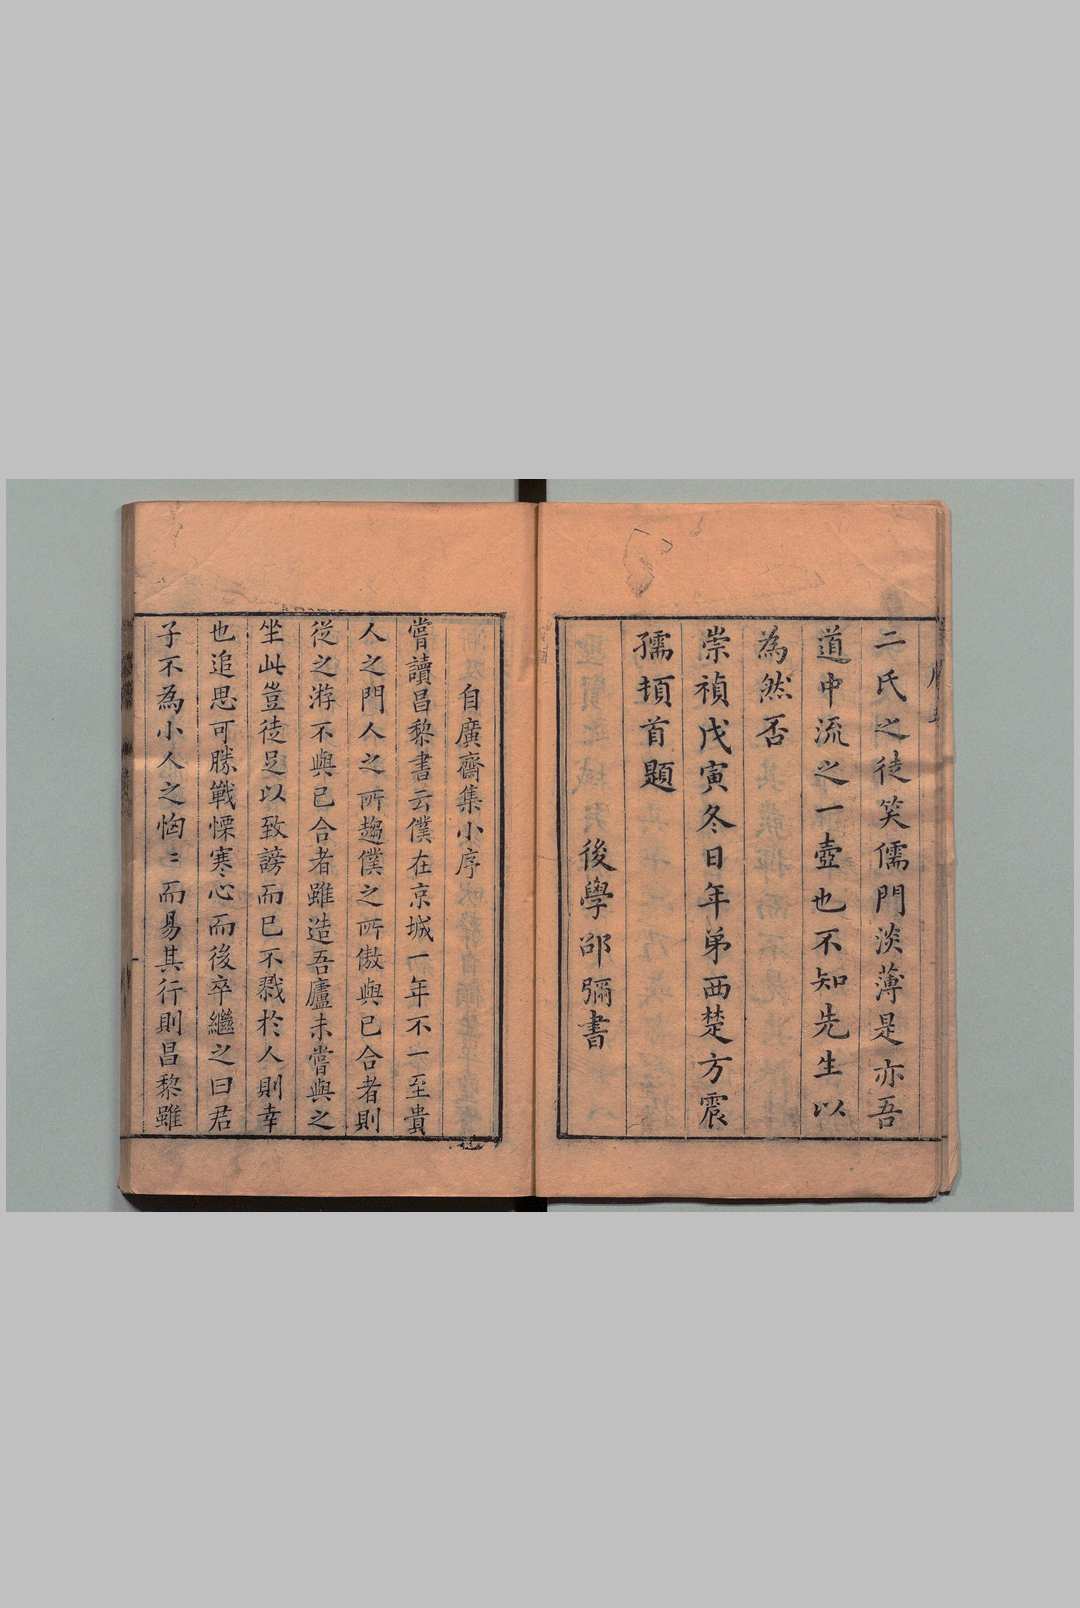 二氏之徒笑儒門淡薄是亦吾
道中流之一壺也不知先生以
為然否
崇禎戊寅冬日年弟西楚方震
孺頓首題
後學邵彌書
自廣齋集小序
嘗讀昌黎書云僕在京城一年不一至貴
人之門人之所趨僕之所傲與已合者則
從之游不與已合者雖造吾廬未嘗與之
坐此豈徒足以致謗而已不戮於人則幸
也追思可勝戰慄寒心而後卒繼之曰君
子不為小人之恟〻而易其行則昌黎雖